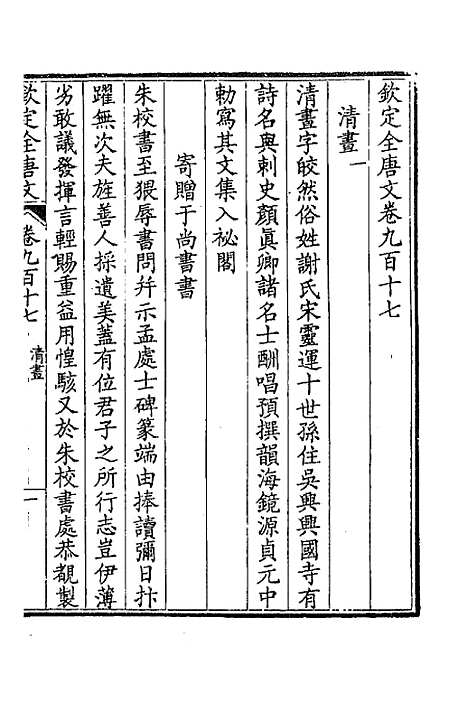 欽定全唐文卷九百十七
清晝一
清晝字皎然俗姓謝氏宋靈運十世孫住吳興興國寺有
詩名與刺史顏眞卿諸名士酬唱預撰韻海鏡源貞元中
勅寫其文集入祕閣
寄贈于尚書書
朱校書至猥辱書問幷示孟處士碑篆端由捧讀彌日抃
躍無次夫旌善人採遺美蓋有位君子之所行志豈伊薄
劣敢議發揮言輕賜重益用惶駭又於朱校書處恭覩製
欽定全唐文
卷九百十七
清晝
一